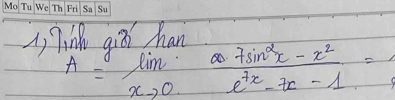 Mo Tu We Th Fri Sa Su
1, Tính giới hạn
A = lim 7sin²x - x² =
x→0 e^7x - 7x - 1